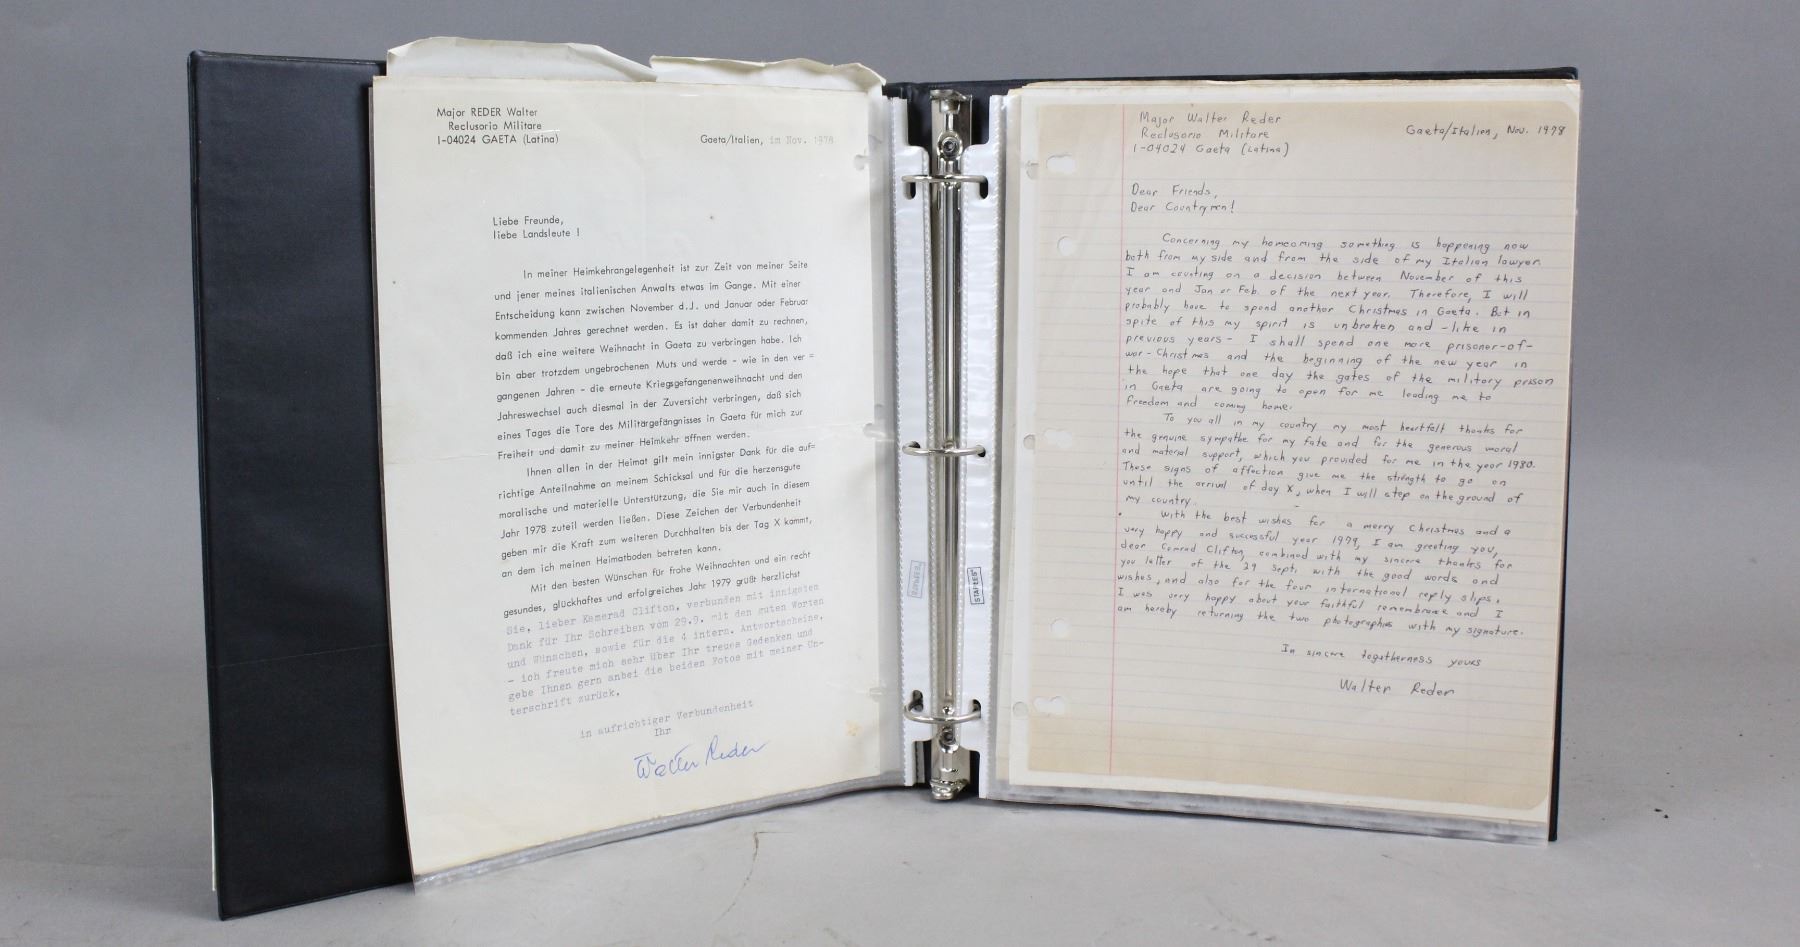 Major REDER Walter
Reclusorio Militare
I-04024 GAETA (Latina)
Gaeta/Italien, im Nov. 1978
Liebe Freunde,
liebe Landsleute !
In meiner Heimkehrangelegenheit ist zur Zeit von meiner Seite
und jener meines italienischen Anwalts etwas im Gange. Mit einer
Entscheidung kann zwischen November d.J. und Januar oder Februar
kommenden Jahres gerechnet werden. Es ist daher damit zu rechnen,
daß ich eine weitere Weihnacht in Gaeta zu verbringen habe. Ich
bin aber trotzdem ungebrochenen Muts und werde - wie in den ver =
gangenen Jahren - die erneute Kriegsgefangenenweihnacht und den
Jahreswechsel auch diesmal in der Zuversicht verbringen, daß sich
eines Tages die Tore des Militärgefängnisses in Gaeta für mich zur
Freiheit und damit zu meiner Heimkehr öffnen werden.
Ihnen allen in der Heimat gilt mein innigster Dank für die auf=
richtige Anteilnahme an meinem Schicksal und für die herzensgute
moralische und materielle Unterstützung, die Sie mir auch in diesem
Jahr 1978 zuteil werden ließen. Diese Zeichen der Verbundenheit
geben mir die Kraft zum weiteren Durchhalten bis der Tag X kammt,
an dem ich meinen Heimatboden betreten kann.
Mit den besten Wünschen für frohe Weihnachten und ein recht
gesundes, glückhaftes und erfolgreiches Jahr 1979 grüßt herzlichst
Sie, lieber Kamerad Clifton, verbunden mit innigsten
Dank für Ihr Schreiben vom 29.9. mit den guten Worten
und Wünschen, sowie für die 4 intern. Antwortscheine.
- ich freute mich sehr über Ihr treues Gedenken und
gebe Ihnen gern anbei die beiden Fotos mit meiner Un-
terschrift zurück.
in aufrichtiger Verbundenheit
Ihr
Walter Reder
STAPLES
Major Walter Reder
Reclusorio Militare
I-04024 Gaeta (Latina)
Gaeta/Italien, Nov. 1978
Dear Friends,
Dear Countrymen!
Concerning my homecoming something is happening now
both from my side and from the side of my Italian lawyer.
I am counting on a decision between November of this
year and Jan or Feb. of the next year. Therefore, I will
probably have to spend another Christmas in Gaeta. But in
spite of this my spirit is unbroken and -like in
previous years- I shall spend one more prisoner-of-
war-Christmas and the beginning of the new year in
the hope that one day the gates of the military prison
in Gaeta are going to open for me leading me to
freedom and coming home.
To you all in my country my most heartfelt thanks for
the genuine sympathe for my fate and for the generous moral
and material support, which you provided for me in the year 1980.
These signs of affection give me the strength to go on
until the arrival of day X, when I will step on the ground of
my country.
With the best wishes for a merry Christmas and a
very happy and successful year 1979, I am greeting you,
dear Comrad Clifton, combined with my sincere thanks for
you letter of the 29 Sept. with the good words and
wishes, and also for the four international reply slips.
I was very happy about your faithful remembrance and I
am hereby returning the two photographies with my signature.
In sincere togetherness yours
Walter Reder